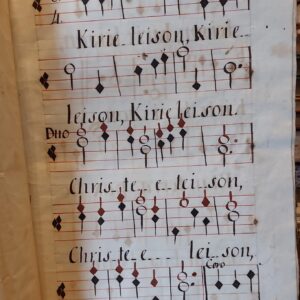 4
Kirie leison, Kirie
leison, Kirie leison.
Duo
Chris_te_e_lei_son,
Chris_te_e_ lei_son,
Coro